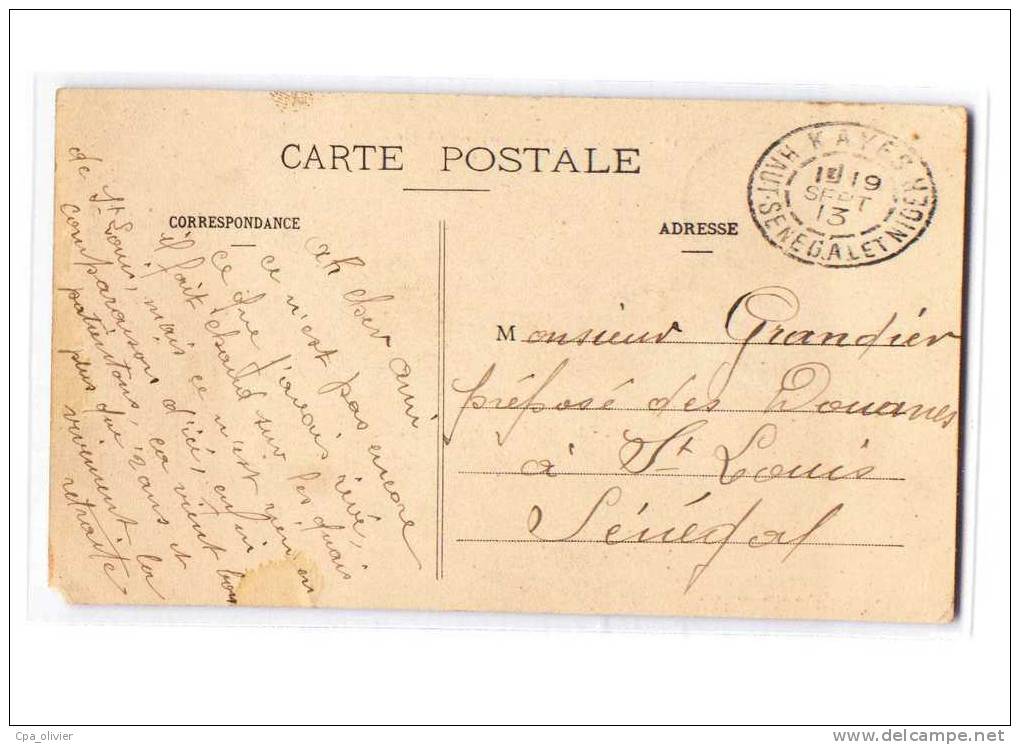 CARTE POSTALE
CORRESPONDANCE
ah cher ami
ce n'est pas encore
ce que j'avais rêvé,
il fait chaud sur les quais
de St Louis, mais ce n'est rien en
comparaison d'ici, enfin
patientons, ça vient bon
plus que 2 ans et
vivement la
retraite
ADRESSE
KAYES
HAUT-SENEGAL ET NIGER
19
SEPT
13
Monsieur Grandier
préposé des Douanes
à St Louis
Sénégal
Cpa_olivier
www.delcampe.net